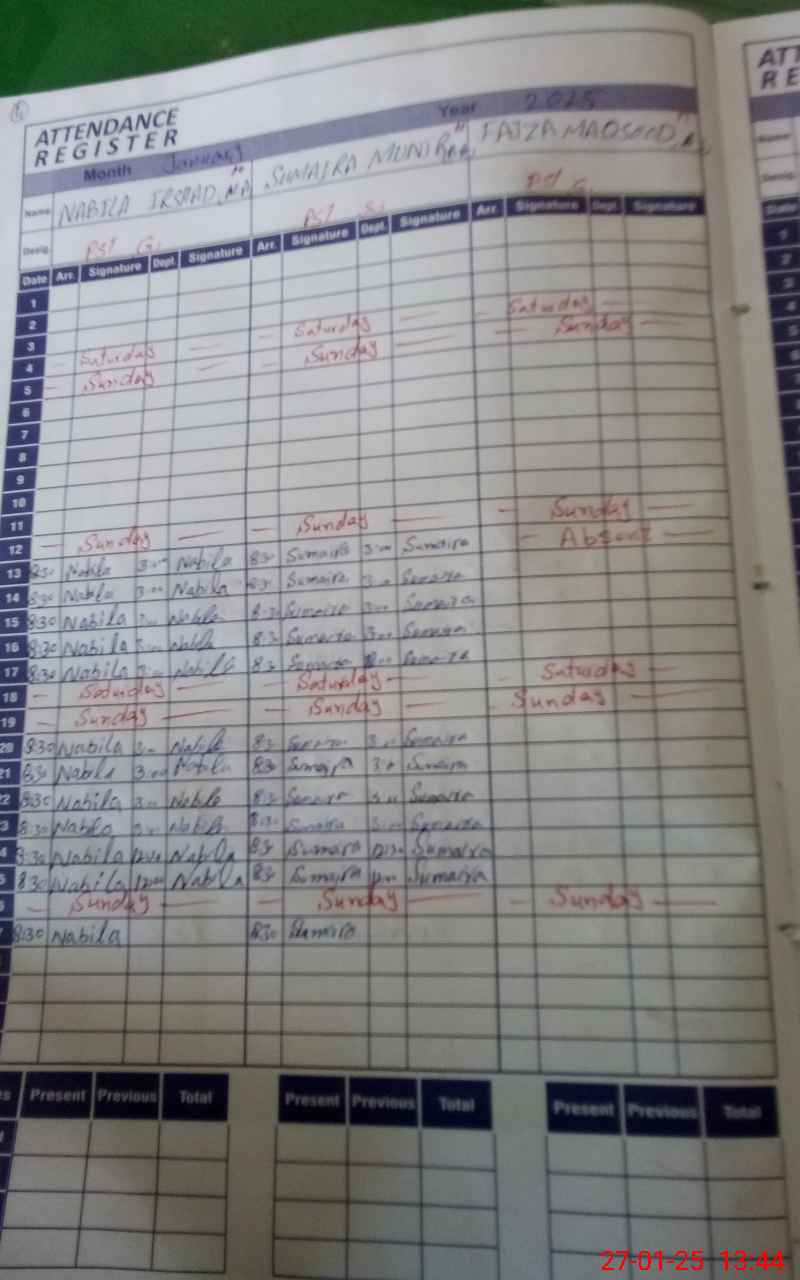 ATTENDANCE
REGISTER
ATT
RE
Month January Year 2025
Name NABILA IRSHAD SUMAIRA MUNIR FAIZA MAQSOOD
Desig. PST G. PST S. PST G.
Date Arr. Signature Dept. Signature Arr. Signature Dept. Signature Arr. Signature Dept. Signature
1
2
3
4 Saturday Saturday Saturday
5 Sunday Sunday Sunday
6
7
8
9
10
11
12 Sunday Sunday Sunday
13 8:30 Nabila 3:00 Nabila 8:30 Sumaira 3:00 Sumaira Absent
14 8:30 Nabila 3:00 Nabila 8:30 Sumaira 3:00 Sumaira
15 8:30 Nabila 3:00 Nabila 8:30 Sumaira 3:00 Sumaira
16 8:30 Nabila 3:00 Nabila 8:30 Sumaira 3:00 Sumaira
17 8:30 Nabila 3:00 Nabila 8:30 Sumaira Sumaira
18 Saturday Saturday Saturday
19 Sunday Sunday Sunday
20 8:30 Nabila 3:00 Nabila 8:30 Sumaira 3:00 Sumaira
21 8:30 Nabila 3:00 Nabila 8:30 Sumaira 3:00 Sumaira
2 8:30 Nabila 3:00 Nabila 8:30 Sumaira 3:00 Sumaira
3 8:30 Nabila 3:00 Nabila 8:30 Sumaira 3:00 Sumaira
4 8:30 Nabila Nabila 8:30 Sumaira Sumaira
5 8:30 Nabila 12:00 Nabila 8:30 Sumaira Sumaira
6 Sunday Sunday Sunday
7 8:30 Nabila 8:30 Sumaira
Present Previous Total Present Previous Total Present Previous Total
27-01-25 13:44